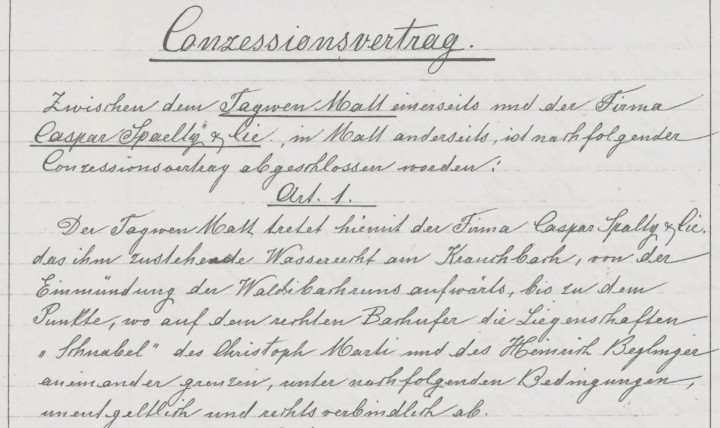 Conzessionsvertrag.
Zwischen dem Tagwen Matt einerseits und der Firma
Caspar Spaelty & Cie., in Matt anderseits, ist nachfolgender
Conzessionsvertrag abgeschlossen worden:
Art. 1.
Der Tagwen Matt tretet hiemit der Firma Caspar Spälty & Cie.
das ihm zustehende Wasserrecht am Krauchbach, von der
Einmündung der Waldibachruns aufwärts, bis zu dem
Punkte, wo auf dem rechten Bachufer die Liegenschaften
„Schnabel" des Christoph Marti und des Heinrich Beglinger
aneinander grenzen, unter nachfolgenden Bedingungen,
unentgeltlich und rechtsverbindlich ab.